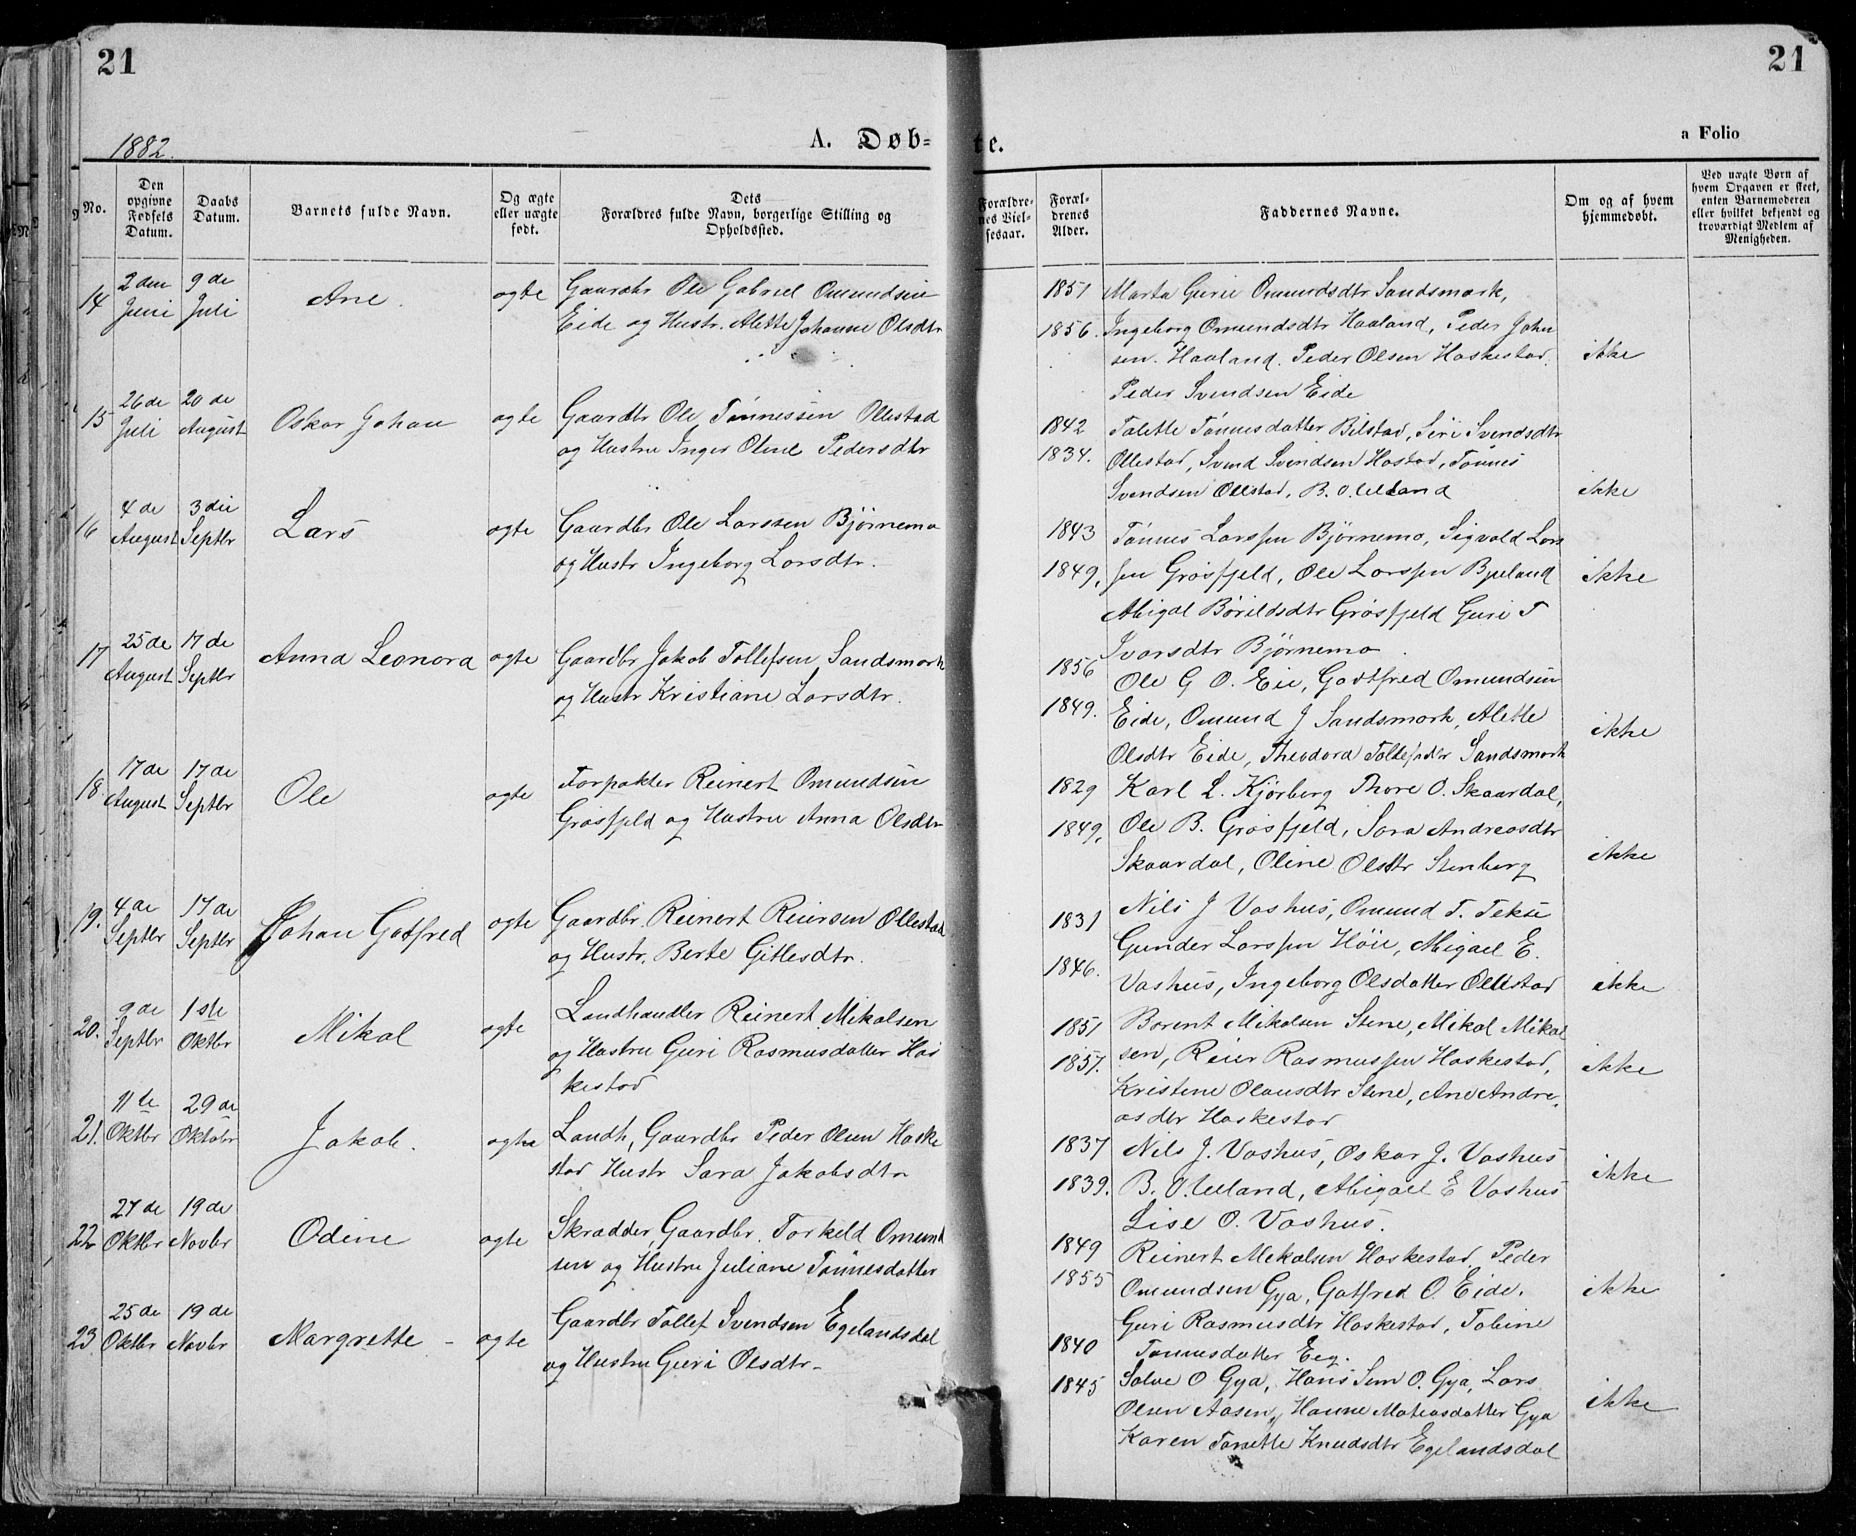 21
21
1882.
A. Døb=
te.
a Folio
No.
Den opgivne Fødsels Datum.
Daabs Datum.
Barnets fulde Navn.
Og ægte eller uægte født.
Dets Forældres fulde Navn, borgerlige Stilling og Opholdssted.
Forældrenes Vielsesaar.
Forældrenes Alder.
Faddernes Navne.
Om og af hvem hjemmedøbt.
Ved uægte Børn af hvem Opgaven er skeet, enten Barnemoderen eller hvilket bekjendt og troværdigt Medlem af Menigheden.
14 2den Juni 9de Juli Ane. ægte Gaardbr Ole Gabriel Omundsen
Eide og Hustr. Alette Johanne Olsdtr
1851 Marta Gurie Omundsdtr Sandsmark,
1856. Ingeborg Omundsdtr Haaland, Peder John
sen Haaland. Peder Olsen Haskestad. ikke
Peder Svendsen Eide
15 26de Juli 20de August Oskar Johan ægte Gaardbr Ole Tønnessen Ollestad
og Hustru Inger Oline Pedersdtr
1842 Talette Tønnesdatter Bilstad, Siri Svendsdtr
1834. Ollestad, Svend Svendsen Hastad, Tønnes
Svendsen Ollestad, B. O. Ueland ikke
16 4de August 3die Septbr Lars ægte Gaardbr Ole Larssen Bjørnemo
og Hustr Ingeborg Larsdtr.
1843 Tønnes Larssen Bjørnemo, Sigvald Lars
1849, sen Grøsfjeld, Ole Larssen Bjuland ikke
Abigal Børildsdtr Grøsfjeld Guri T
Ivarsdtr Bjørnemo.
17 25de August 17de Septbr Anna Leonora ægte Gaardbr Jakob Tollefsen Sandsmark
og Hustr Kristiane Larsdtr.
1856 Ole G O. Eie, Godtfred Omundsen
1849. Eide, Omund J Sandsmark, Alette ikke
Olsdtr Eide, Theodora Tollefsdtr Sandsmark
18 17de August 17de Septbr Ole ægte Forpakter Reinert Omundsen
Grøsfjeld og Hustru Anna Olsdtr
1829 Karl L. Kjørberg Thore O. Skaardal,
1849, Ole B. Grøsfjeld, Sara Andreasdtr
Skaardal, Oline Olsdtr Stenberg ikke
19. 4de Septbr 17de Septbr Johan Gotfred ægte Gaardbr. Reinert Reiersen Ollestad
og Hustr. Berte Gitlesdtr.
1831 Nils J Vashus, Omund T. Tekse
Gunder Larssen Høie, Abigael E.
1846. Vashus, Ingeborg Olsdatter Ollestad ikke
20. 9de Septbr 1ste Oktbr Mikal ægte Landhandler Reinert Mikalsen
og Hustru Guri Rasmusdatter Has
kestad
1851 Borent Mikalsen Stene, Mikal Mikal
1857. sen, Reier Rasmussen Haskestad, ikke
Kristene Olausdtr Stene, Ane Andre,
asdtr Haskestad
21. 11te Oktbr 29de Oktobr Jakob. ægte Landh, Gaardbr Peder Olsen Haske
stad Hustr Sara Jakobsdtr
1837 Nils J. Vashus, Oskar J. Vashus
1839. B. O. Ueland, Abigael E Vashus ikke
Lise O. Vashus.
22 27de Oktbr 19de Novbr Odine ægte Skrædder, Gaardbr. Torkild Omund
sen og Hustru Juliane Tønnesdatter
1849 Reinert Mekalsen Haskestad, Peder
1855 Omundsen Gya, Gotfred O. Eide. ikke
Guri Rasmusdtr Haskestad, Tobine
Tønnesdatter Eeg.
23 25de Oktbr 19de Novbr Margrette - ægte Gaardbr Tollef Svendsen Egelandsdal
og Hustru Guri Olsdtr-
1840
1845 Salve O Gya, Hans Sem O. Gya, Lars
Olsen Aasen, Hanne Mateasdatter Gya ikke
Karen Tonette Knudsdtr Egelandsdal